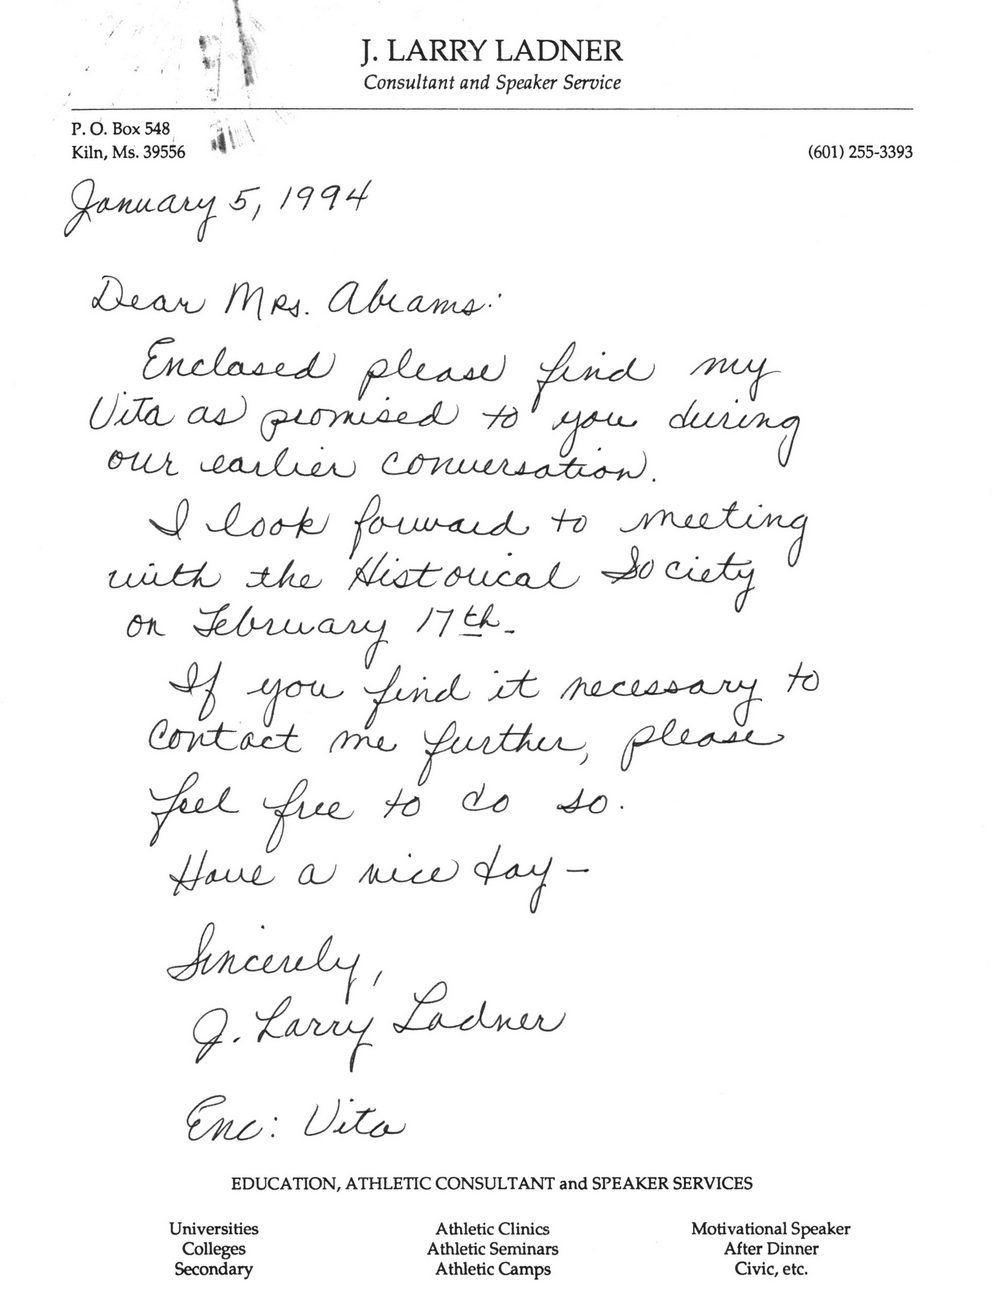 J. LARRY LADNER
Consultant and Speaker Service
P. O. Box 548
Kiln, Ms. 39556
(601) 255-3393
January 5, 1994
Dear Mrs. Abrams:
Enclosed please find my
Vita as promised to you during
our earlier conversation.
I look forward to meeting
with the Historical Society
on February 17th.
If you find it necessary to
contact me further, please
feel free to do so.
Have a nice day -
Sincerely,
J. Larry Ladner
Enc: Vita
EDUCATION, ATHLETIC CONSULTANT and SPEAKER SERVICES
Universities
Colleges
Secondary
Athletic Clinics
Athletic Seminars
Athletic Camps
Motivational Speaker
After Dinner
Civic, etc.